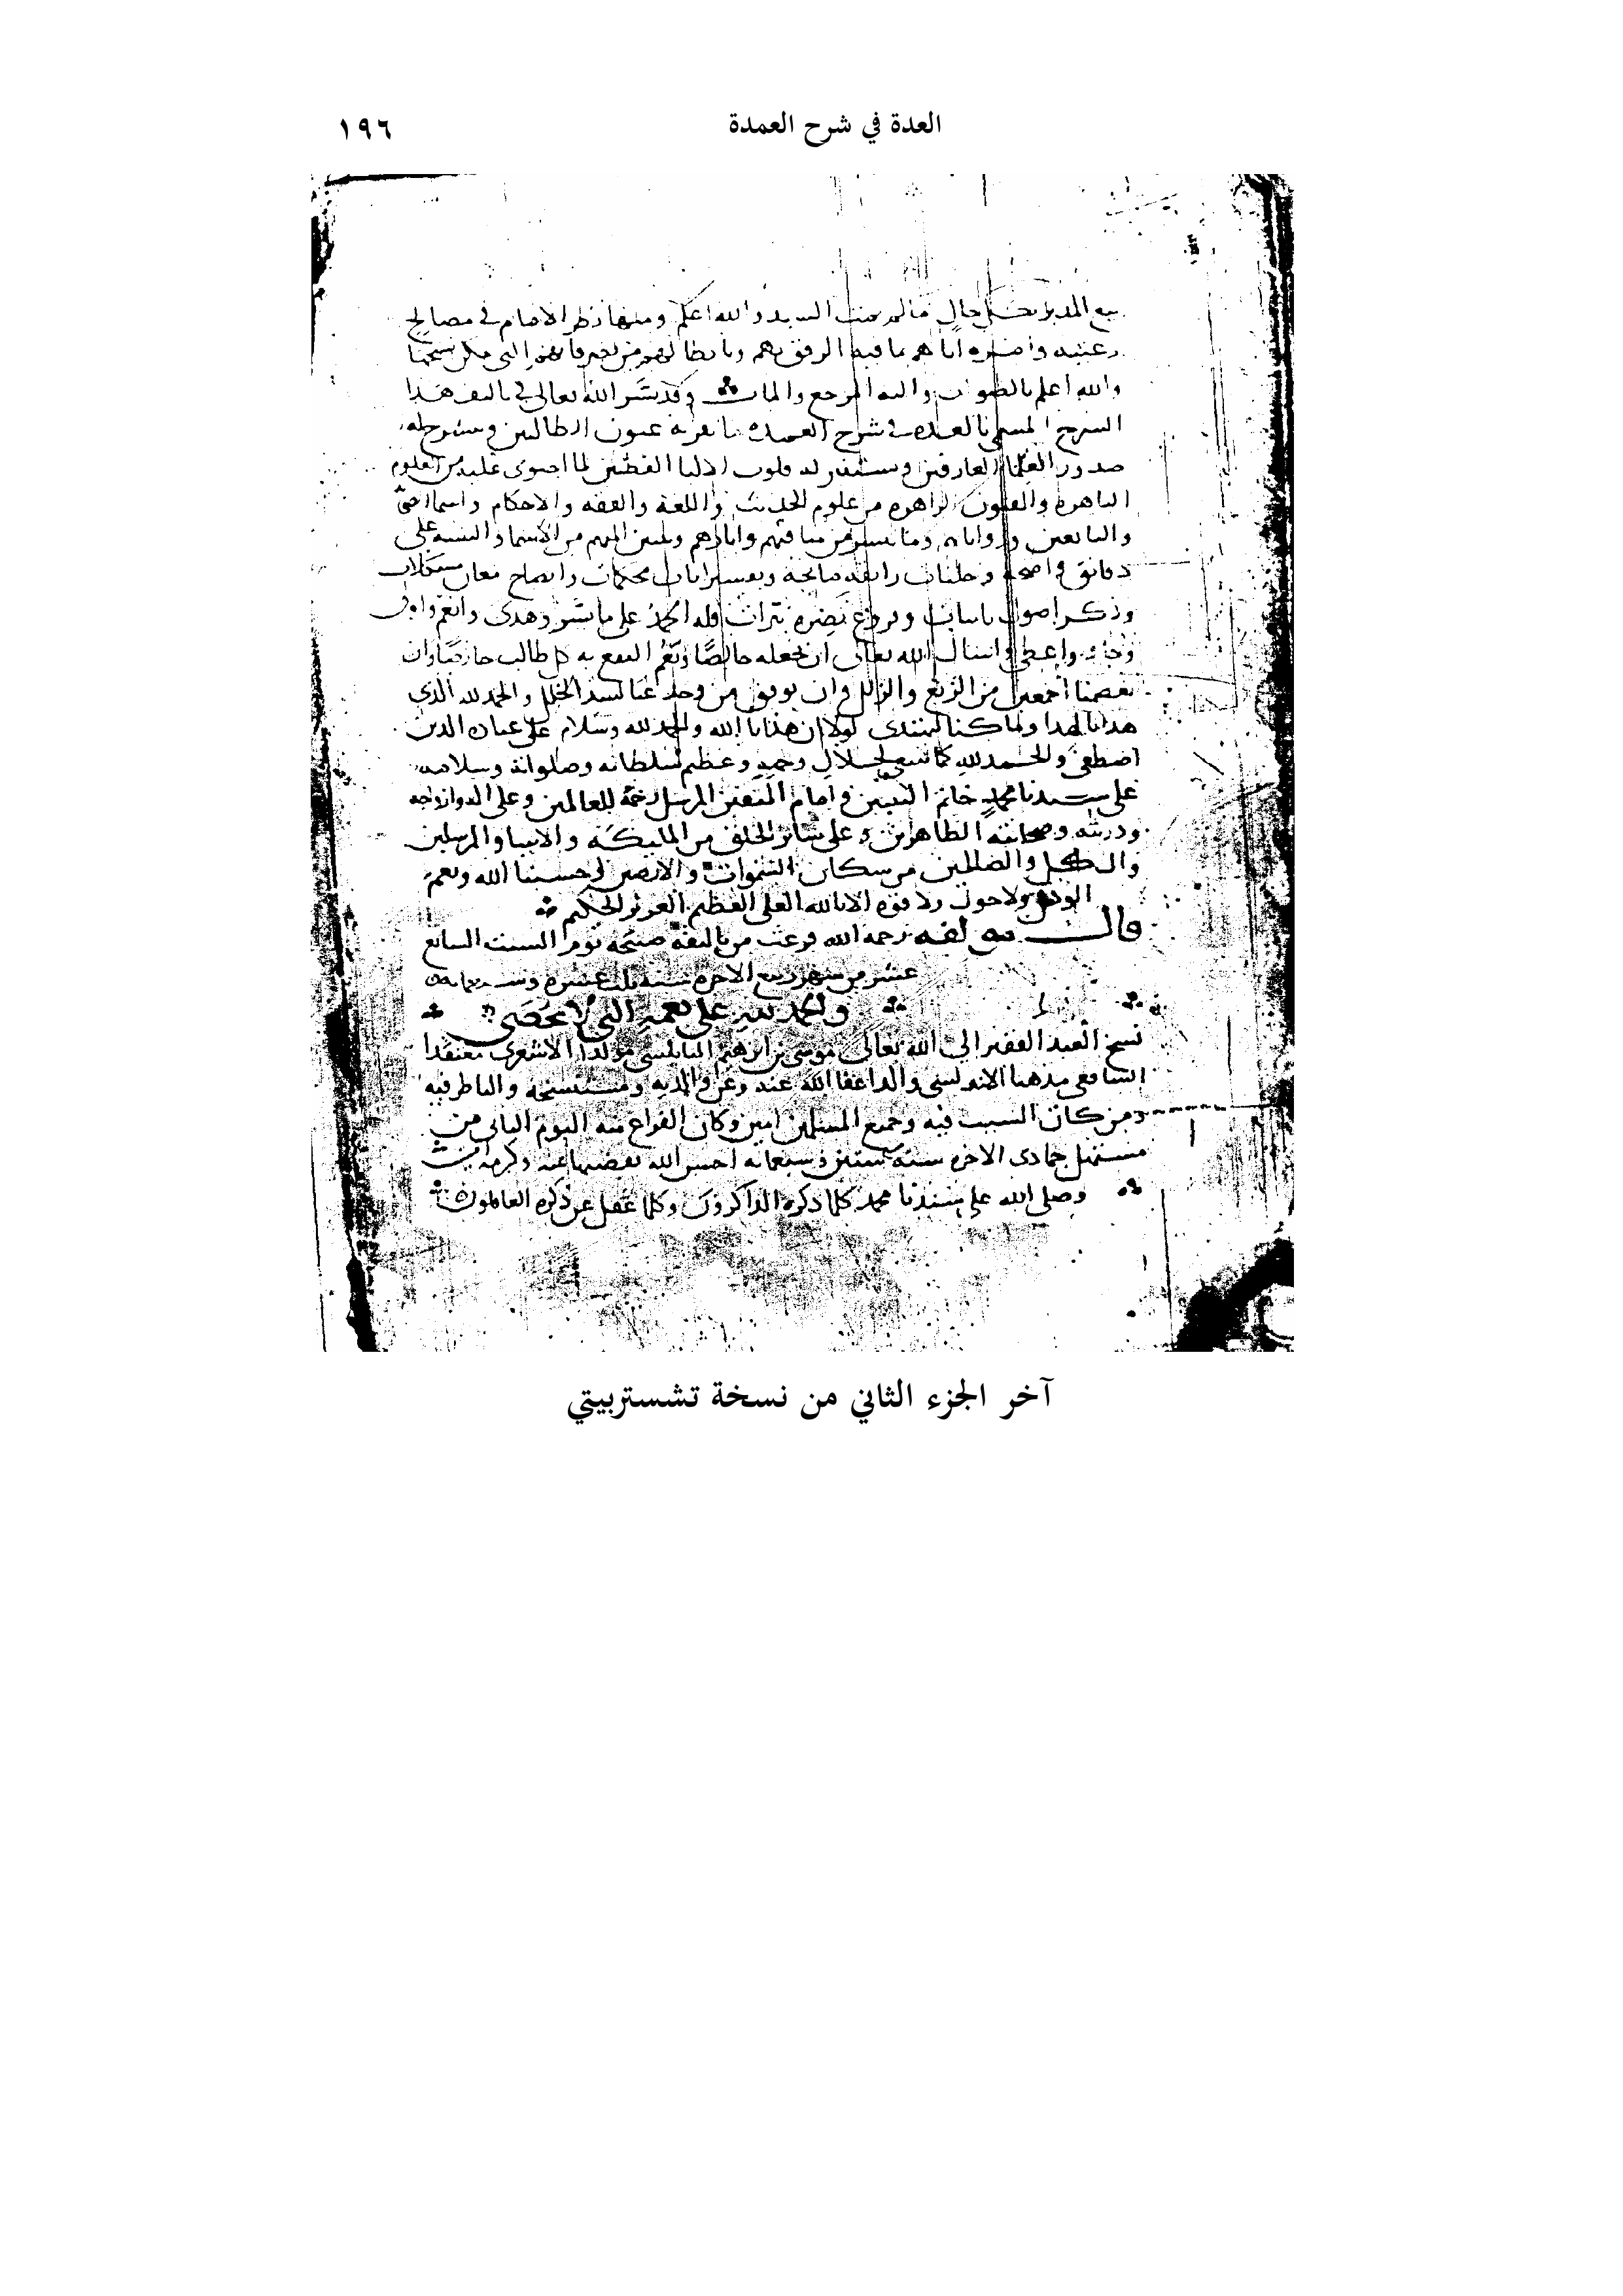 العدة في شرح العمدة
١٩٦
بيع المدبر بكل حال ما لم يمت السيد والله اعلم ومنها نظر الامام في مصالح
رعيته وامره اياهم بما فيه الرفق بهم
والله اعلم بالصواب واليه المرجع والماب وقد يسر الله تعالى في تاليف هذا
الشرح المسمى بالعده في شرح العمده ما تقر به عيون الطالبين وينشرح له
صدور العلما العارفين وتستنير له قلوب الاوليا لما احتوى عليه من العلوم
الباهره والفنون الزاهره من علوم الحديث واللغة والفقه والاحكام واسما
والتابعين ورواياته وما تيسر من مناقبهم واثارهم وتبيين المبهم من الاسما والتنبيه على
دقائق واضحة
وذكر اصول وفروع نضره فله الحمد على ما يسر وهدى وانعم واولى
واعطى واسال الله تعالى ان يجعله خالصا ويعم النفع به كل طالب وان
يعصمنا اجمعين من الزيغ والزلل وان يوفق من وجد عيبا لسد الخلل والحمد لله الذي
هدانا لهدا وما كنا لنهتدى لولا ان هدانا الله والحمد لله وسلام على عباده الدين
اصطفى والحمد لله كما ينبغي لجلال وجهه وعظيم سلطانه وصلواته وسلامه
على سيدنا محمد خاتم النبيين وامام المتقين المرسل رحمة للعالمين وعلى اله وازواجه
ودريته وصحابته الطاهرين وعلى سائر الخلق من المليكة والانبيا والمرسلين
والكل والصالحين من سكان السموات والارضين وحسبنا الله ونعم
الوكيل ولا حول ولا قوه الا بالله العلى العظيم العزيز الحكيم
قال مولفه رحمه الله فرغت من تاليفه صبيحة يوم السبت السابع
عشر من شهر ربيع الاخره سنة ثلث عشره وسبعمايه
والحمد لله على نعمه التي لا تحصى
نسخ العبد الفقير الى الله تعالى موسى بن ابرهيم النابلسى مولدا الاشعرى معتقدا
الشافعي مذهبا الاندلسى والدا عفا الله عنه وعن والديه ومستنسخه والناظر فيه
ومن كان السبب فيه وجميع المسلمين امين وكان الفراغ منه اليوم الثانى من
مستهل جمادى الاخره سنة ستين وسبعمائه احسن الله تقضيها بمنه وكرمه امين
وصلى الله على سيدنا محمد كلما ذكره الذاكرون وكلما غفل عن ذكره الغافلون
آخر الجزء الثاني من نسخة تشستربيتي